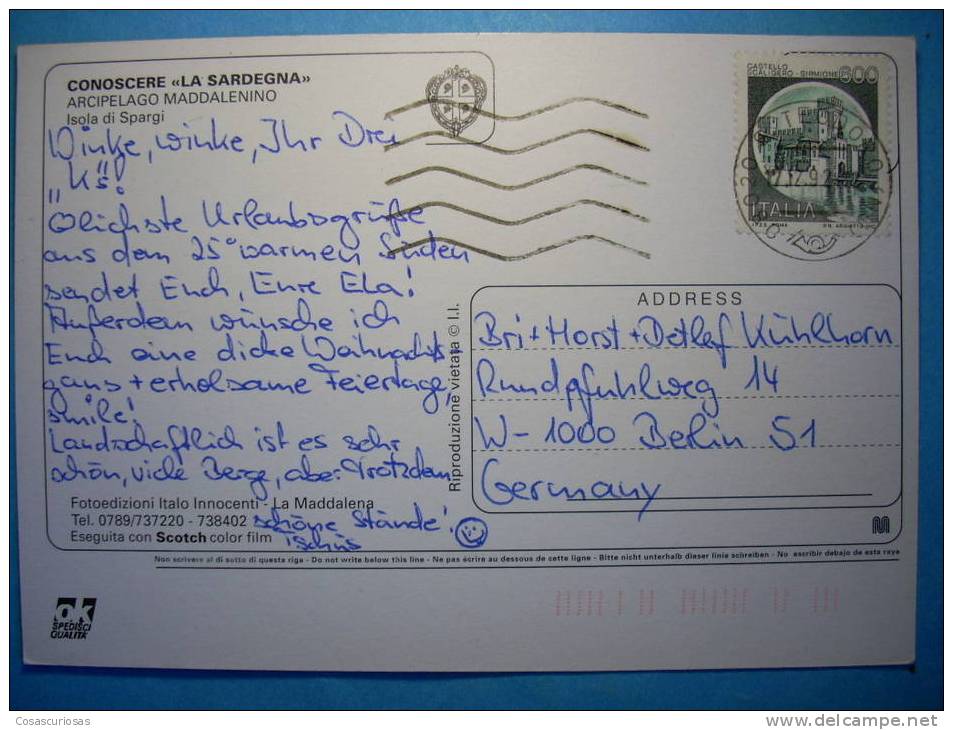 CONOSCERE «LA SARDEGNA»
ARCIPELAGO MADDALENINO
Isola di Spargi
Winke, winke, Ihr Drei
„K's"!
Urlaubsgrüße
aus dem 25° warmen Süden
sendet Euch, Eure Ela!
Außerdem wünsche ich
Euch eine dicke Weihnachts-
gans + erholsame Feiertage,
smile!
Landschaftlich ist es sehr
schön, viele Berge, aber trotzdem
schöne Strände!
Tschüs
Fotoedizioni Italo Innocenti - La Maddalena
Tel. 0789/737220 - 738402
Eseguita con Scotch color film
Riproduzione vietata © I.I.
CASTELLO
SCALIGERO - SIRMIONE
600
ITALIA
ADDRESS
Bri + Horst + Detlef Kühlhorn
Rundpfuhlweg 14
W-1000 Berlin 51
Germany
Non scrivere al di sotto di questa riga - Do not write below this line - Ne pas écrire au dessous de cette ligne - Bitte nicht unterhalb dieser linie schreiben - No escribir debajo de esta raya
ok
SPEDISCI
QUALITÀ
Cosascuriosas
www.delcampe.net